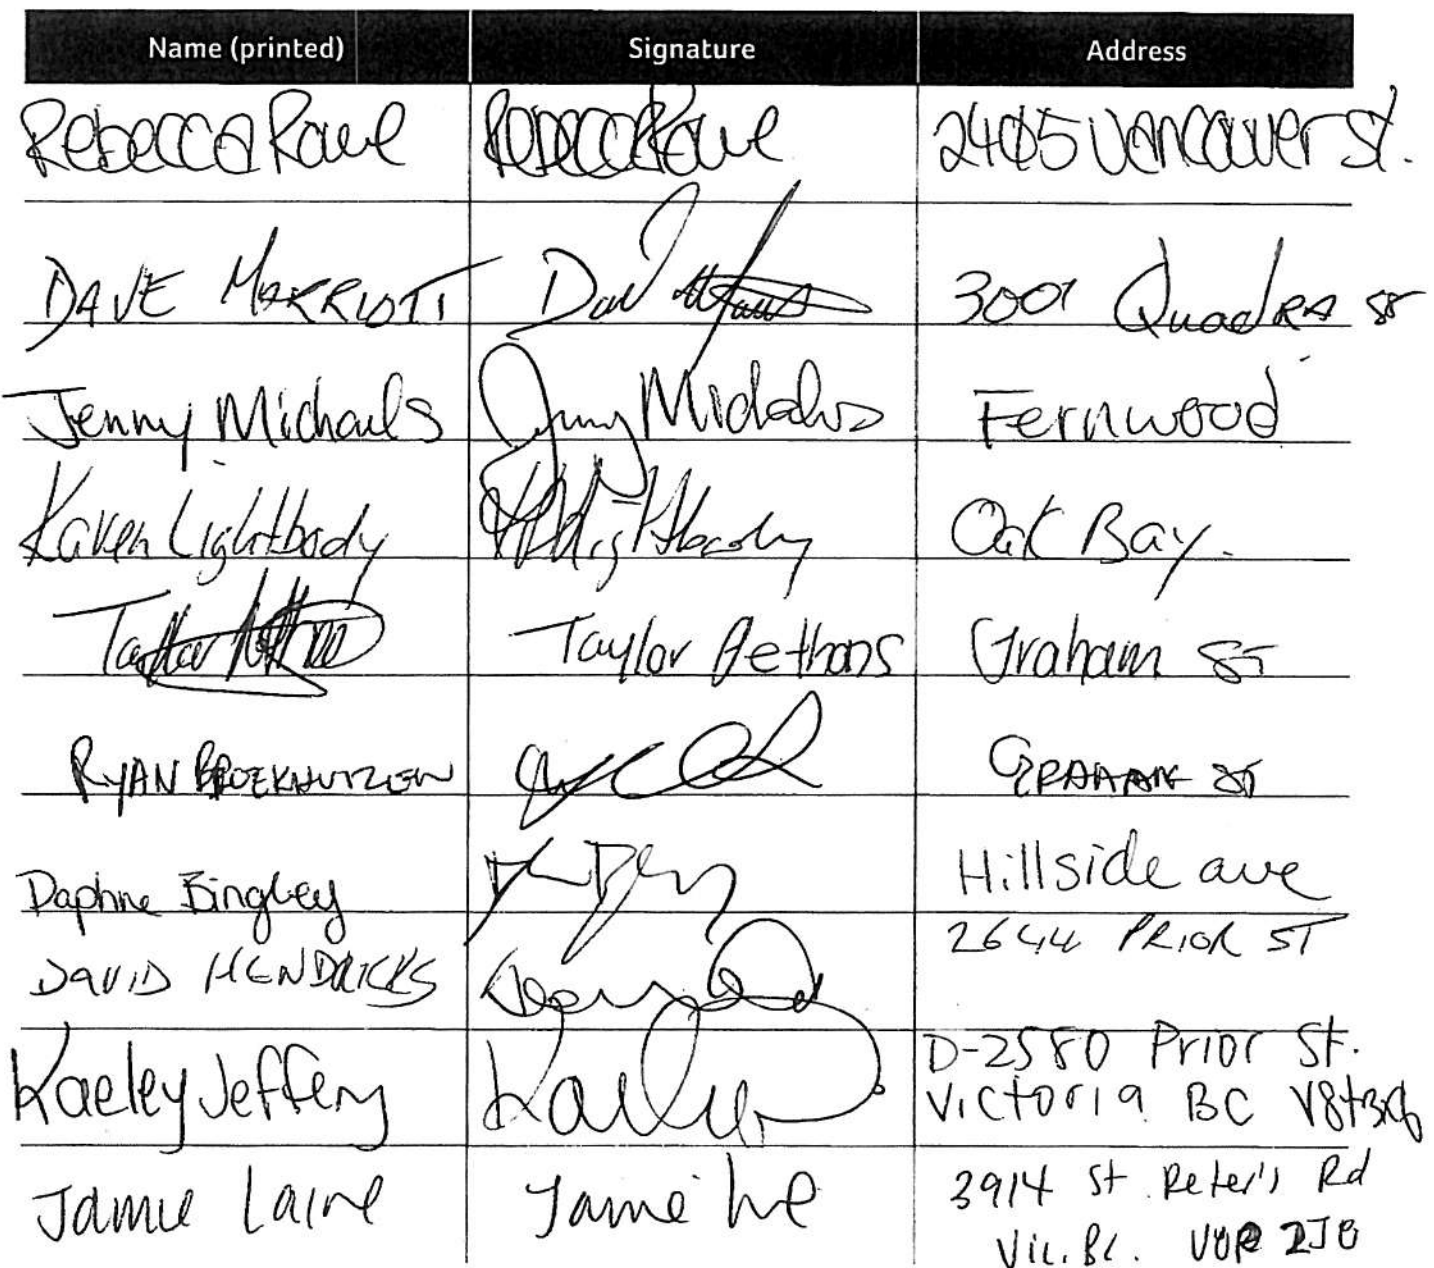 Name (printed) Signature Address
Rebecca Rowe Rebecca Rowe 2405 Vancouver St.
DAVE MARRIOTT Dave 3001 Quadra St
Jenny Michaels Jenny Michaels Fernwood
Karen Lightbody K Lightbody Oak Bay.
Taylor Taylor Bethans Graham St
RYAN BROEKHUIZEN GRAHAM ST
Daphne Bingley Hillside ave
DAVID HENDRICKS 2644 PRIOR ST
Kaeley Jeffery Kaeley D-2580 Prior St.
Victoria BC
Jamie Laine Jamie 3914 St. Peter's Rd
Vic. BC.